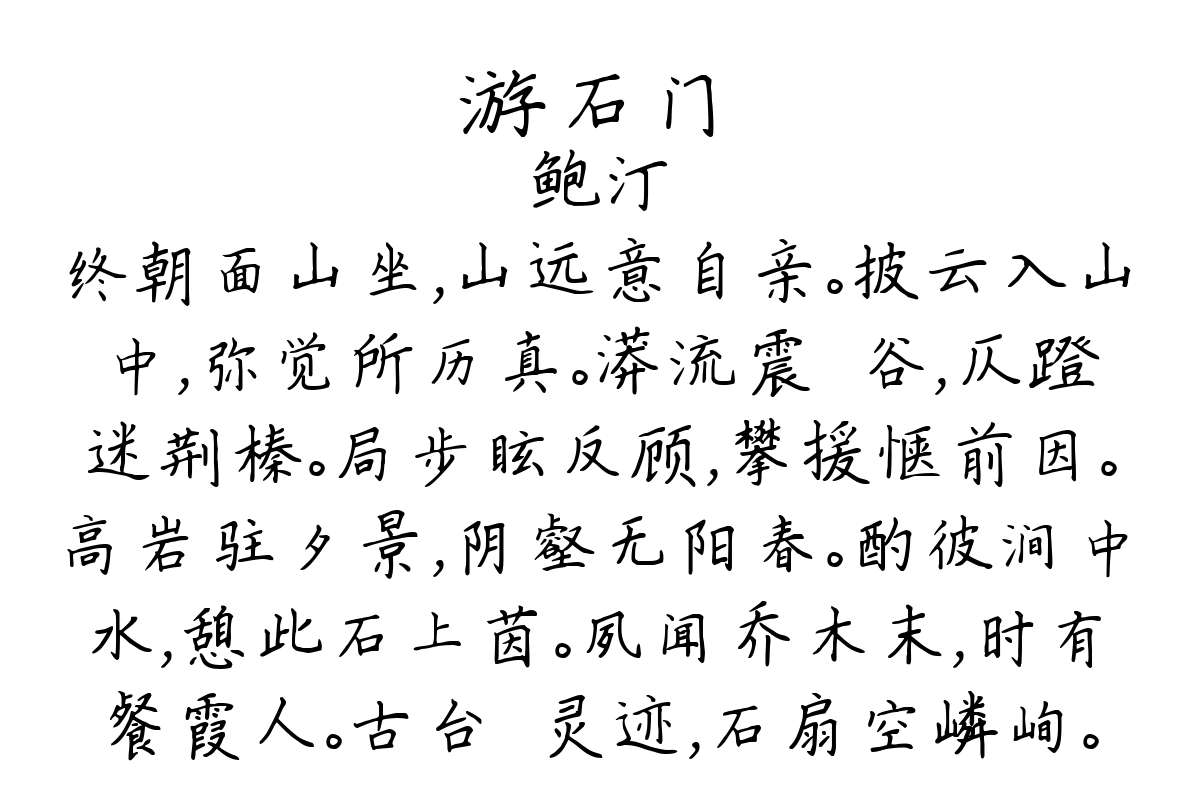 游石门
鲍汀
终朝面山坐,山远意自亲。披云入山
中,弥觉所历真。漭流震 谷,仄蹬
迷荆榛。局步眩反顾,攀援惬前因。
高岩驻夕景,阴壑无阳春。酌彼涧中
水,憩此石上茵。夙闻乔木末,时有
餐霞人。古台 灵迹,石扇空嶙峋。